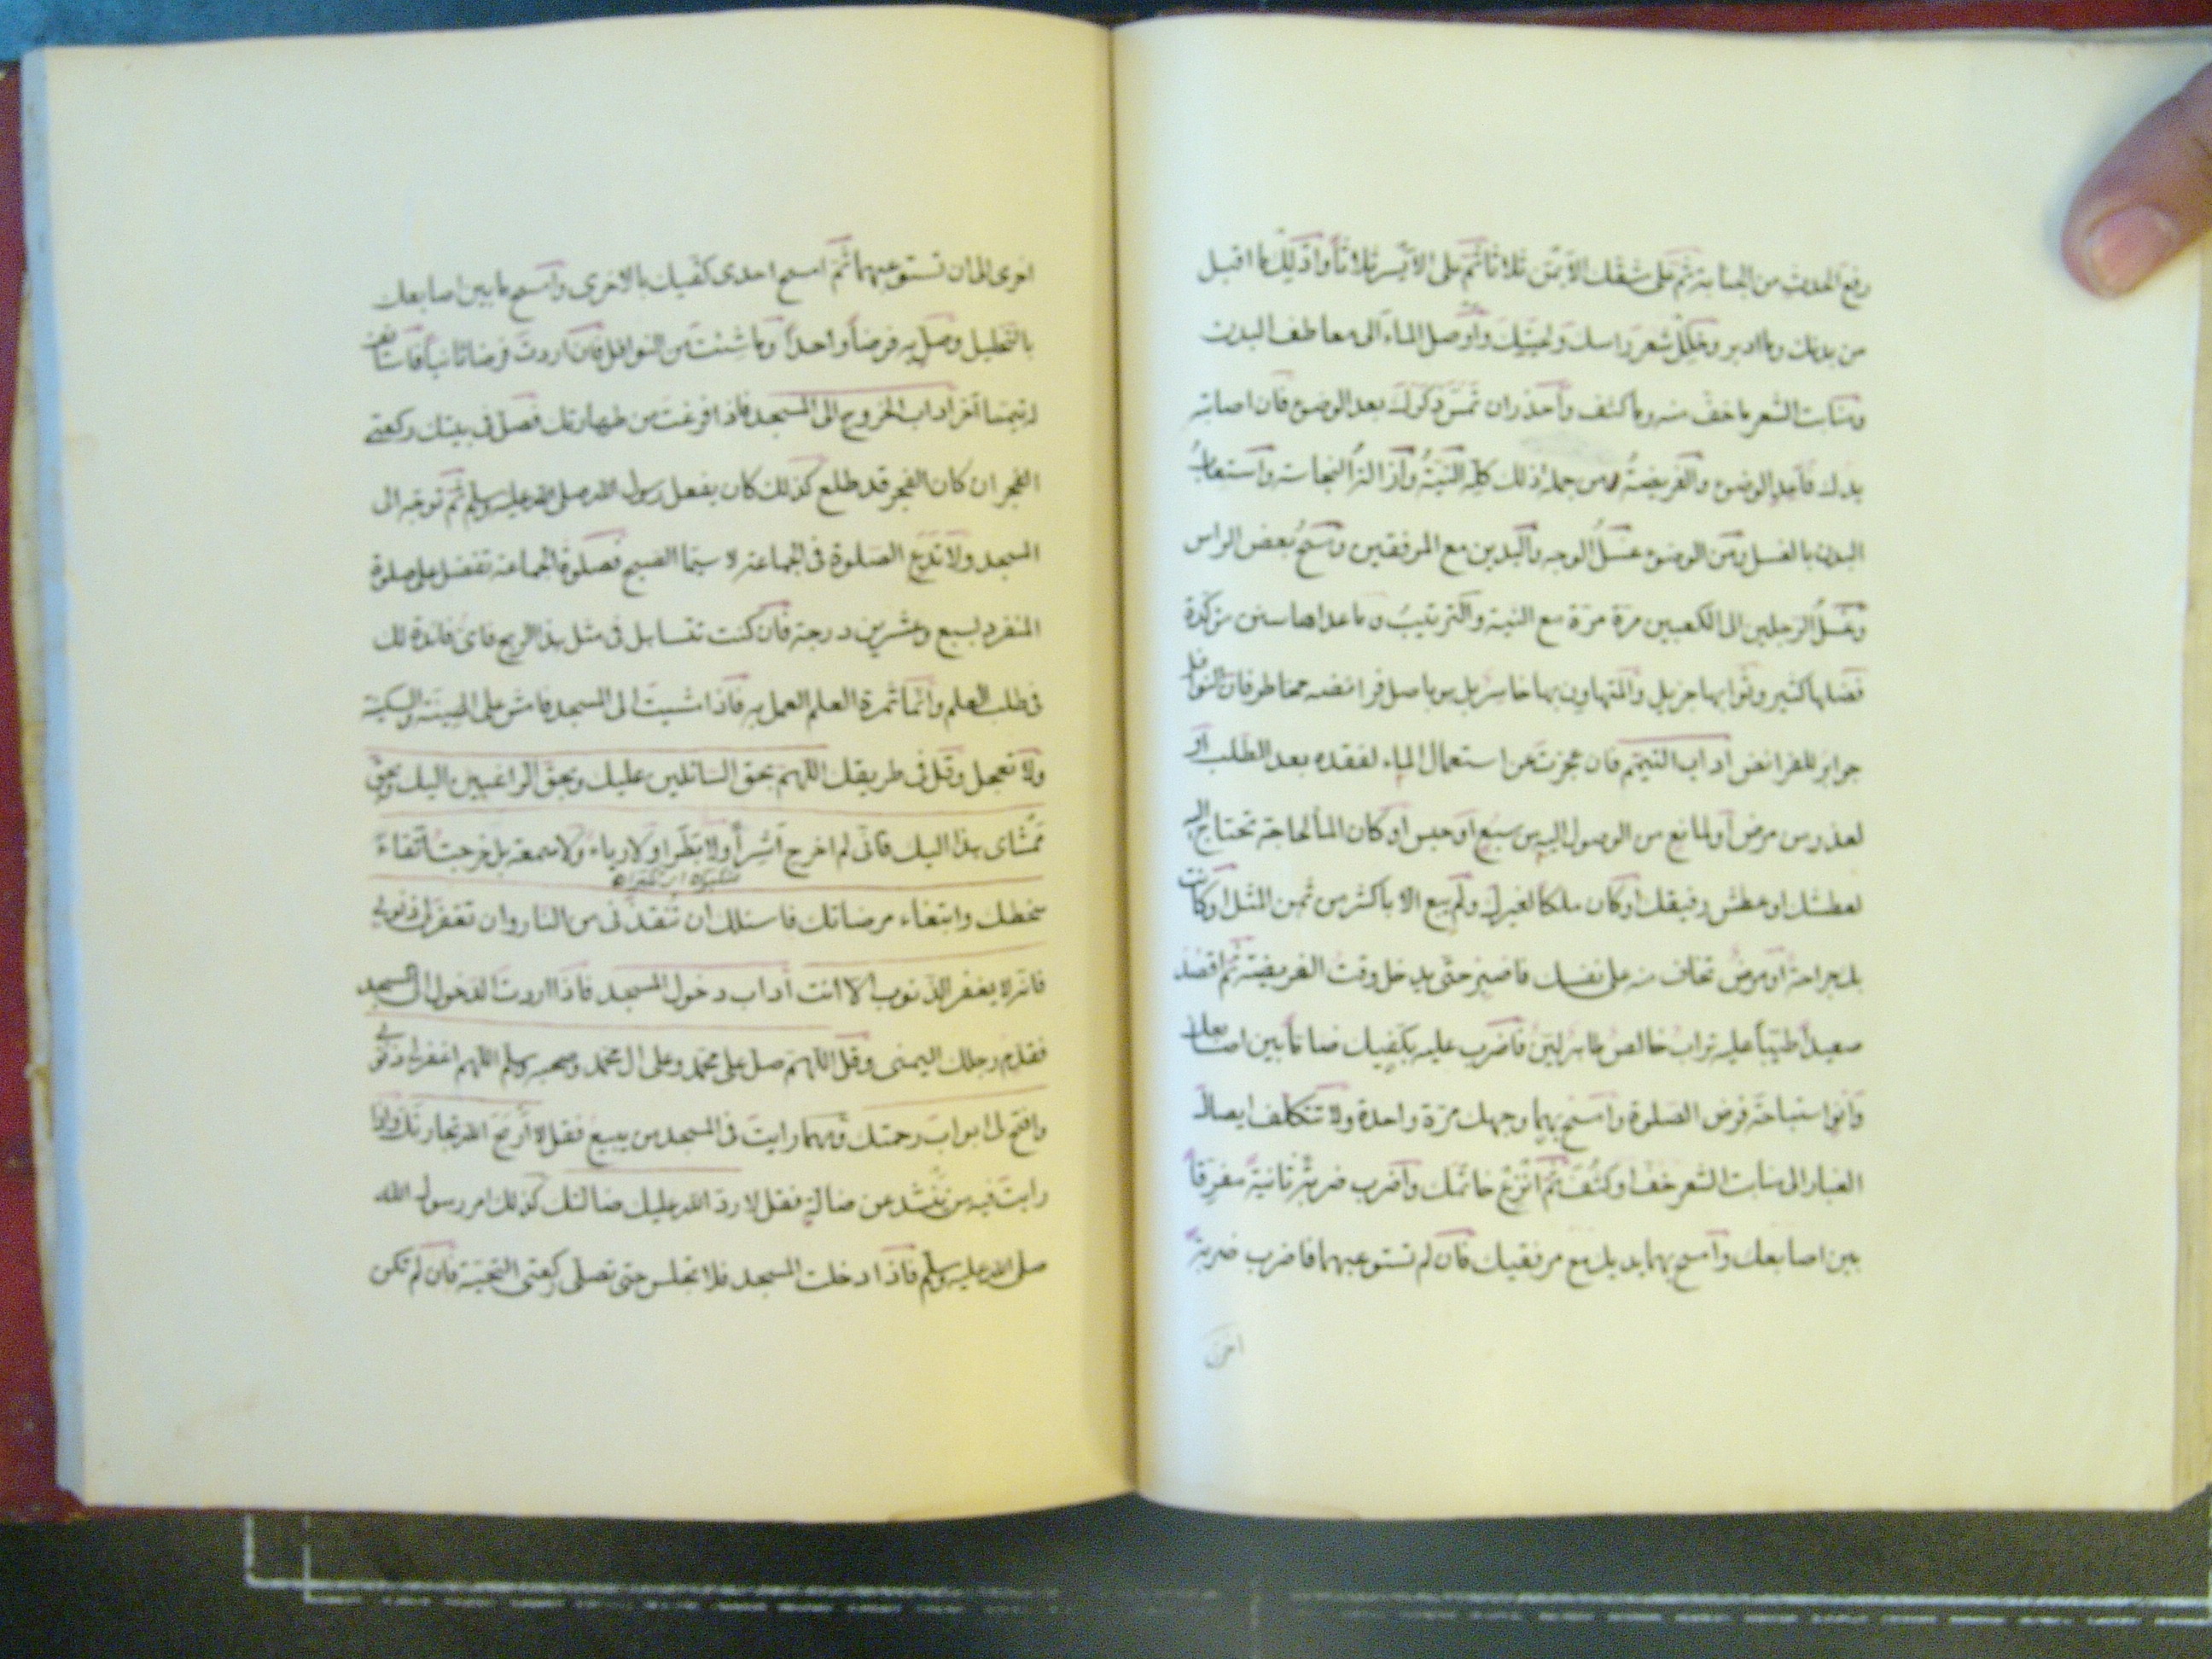 رفع الحدث من الجنابة ثم على شقك الايمن ثلاثا ثم على الايسر ثلاثا وادلك ما اقبل
من بدنك وما ادبر وخلل شعر راسك ولحيتك واوصل الماء الى معاطف البدن
ومنابت الشعر ما خف منه وما كثف واحذر ان تمس ذكرك بعد الوضوء فان اصابته
يدك فاعد الوضوء والفريضة من جملة ذلك كله النية وازالة النجاسة واستيعاب
البدن بالغسل ومن الوضوء غسل الوجه واليدين مع المرفقين ومسح بعض الراس
وغسل الرجلين الى الكعبين مرة مرة مع النية والترتيب وما عداها سنن مؤكدة
فضلها كثير وثوابها جزيل والمتهاون بها خاسر بل هو باصل فرائضه مخاطر فان النوافل
جوابر للفرائض اداب التيمم فان عجزت عن استعمال الماء لفقده بعد الطلب او
لعذر من مرض او لمانع من الوصول اليه من سبع او حبس او كان الماء لحاجة تحتاج اليه
لعطشك او عطش رفيقك او كان ملكا لغيرك ولم يبع الا باكثر من ثمن المثل او كانت
بك جراحة او مرض تخاف منه على نفسك فاصبر حتى يدخل وقت الفريضة ثم اقصد
صعيدا طيبا عليه تراب خالص طاهر لين فاضرب عليه بكفيك ضاما بين اصابعك
وانو استباحة فرض الصلوة وامسح بهما وجهك مرة واحدة ولا تتكلف ايصال
الغبار الى منابت الشعر خف او كثف ثم انزع خاتمك واضرب ضربة ثانية مفرقا
بين اصابعك وامسح بهما يديك مع مرفقيك فان لم تستوعبهما فاضرب ضربة
اخرى الى ان تستوعبهما ثم امسح احدى كفيك بالاخرى وامسح ما بين اصابعك
بالتخليل وصل به فرضا واحدا وما شئت من النوافل فان اردت فرضا ثانيا فاستانف
له تيمما آخر اداب الخروج الى المسجد فاذا فرغت من طهارتك فصل في بيتك ركعتي
الفجر ان كان الفجر قد طلع كذلك كان يفعل رسول الله صلى الله عليه وسلم ثم توجه الى
المسجد ولا تدع الصلوة في الجماعة لا سيما الصبح فصلوة الجماعة تفضل على صلوة
المنفرد بسبع وعشرين درجة فان كنت تتساهل في مثل هذا الربح فاى فائدة لك
في طلب العلم وانما ثمرة العلم العمل به فاذا مشيت الى المسجد فامش على الهينة والسكينة
ولا تعجل وقل في طريقك اللهم بحق السائلين عليك وبحق الراغبين اليك وبحق
ممشاى هذا اليك فانى لم اخرج اشرا ولا بطرا ولا رياء ولا سمعة بل خرجت اتقاء
سخطك وابتغاء مرضاتك فاسئلك ان تنقذنى من النار وان تغفر لى ذنوبى
فانه لا يغفر الذنوب الا انت اداب دخول المسجد فاذا اردت الدخول الى المسجد
فقدم رجلك اليمنى وقل اللهم صل على محمد وعلى ال محمد وصحبه وسلم اللهم اغفر لى ذنوبى
وافتح لى ابواب رحمتك ومهما رايت في المسجد من يبيع فقل لا اربح الله تجارتك واذا
رايت فيه من ينشد عن ضالة فقل لا رد الله عليك ضالتك كذلك امر رسول الله
صلى الله عليه وسلم فاذا دخلت المسجد فلا تجلس حتى تصلى ركعتى التحية فان لم تكن